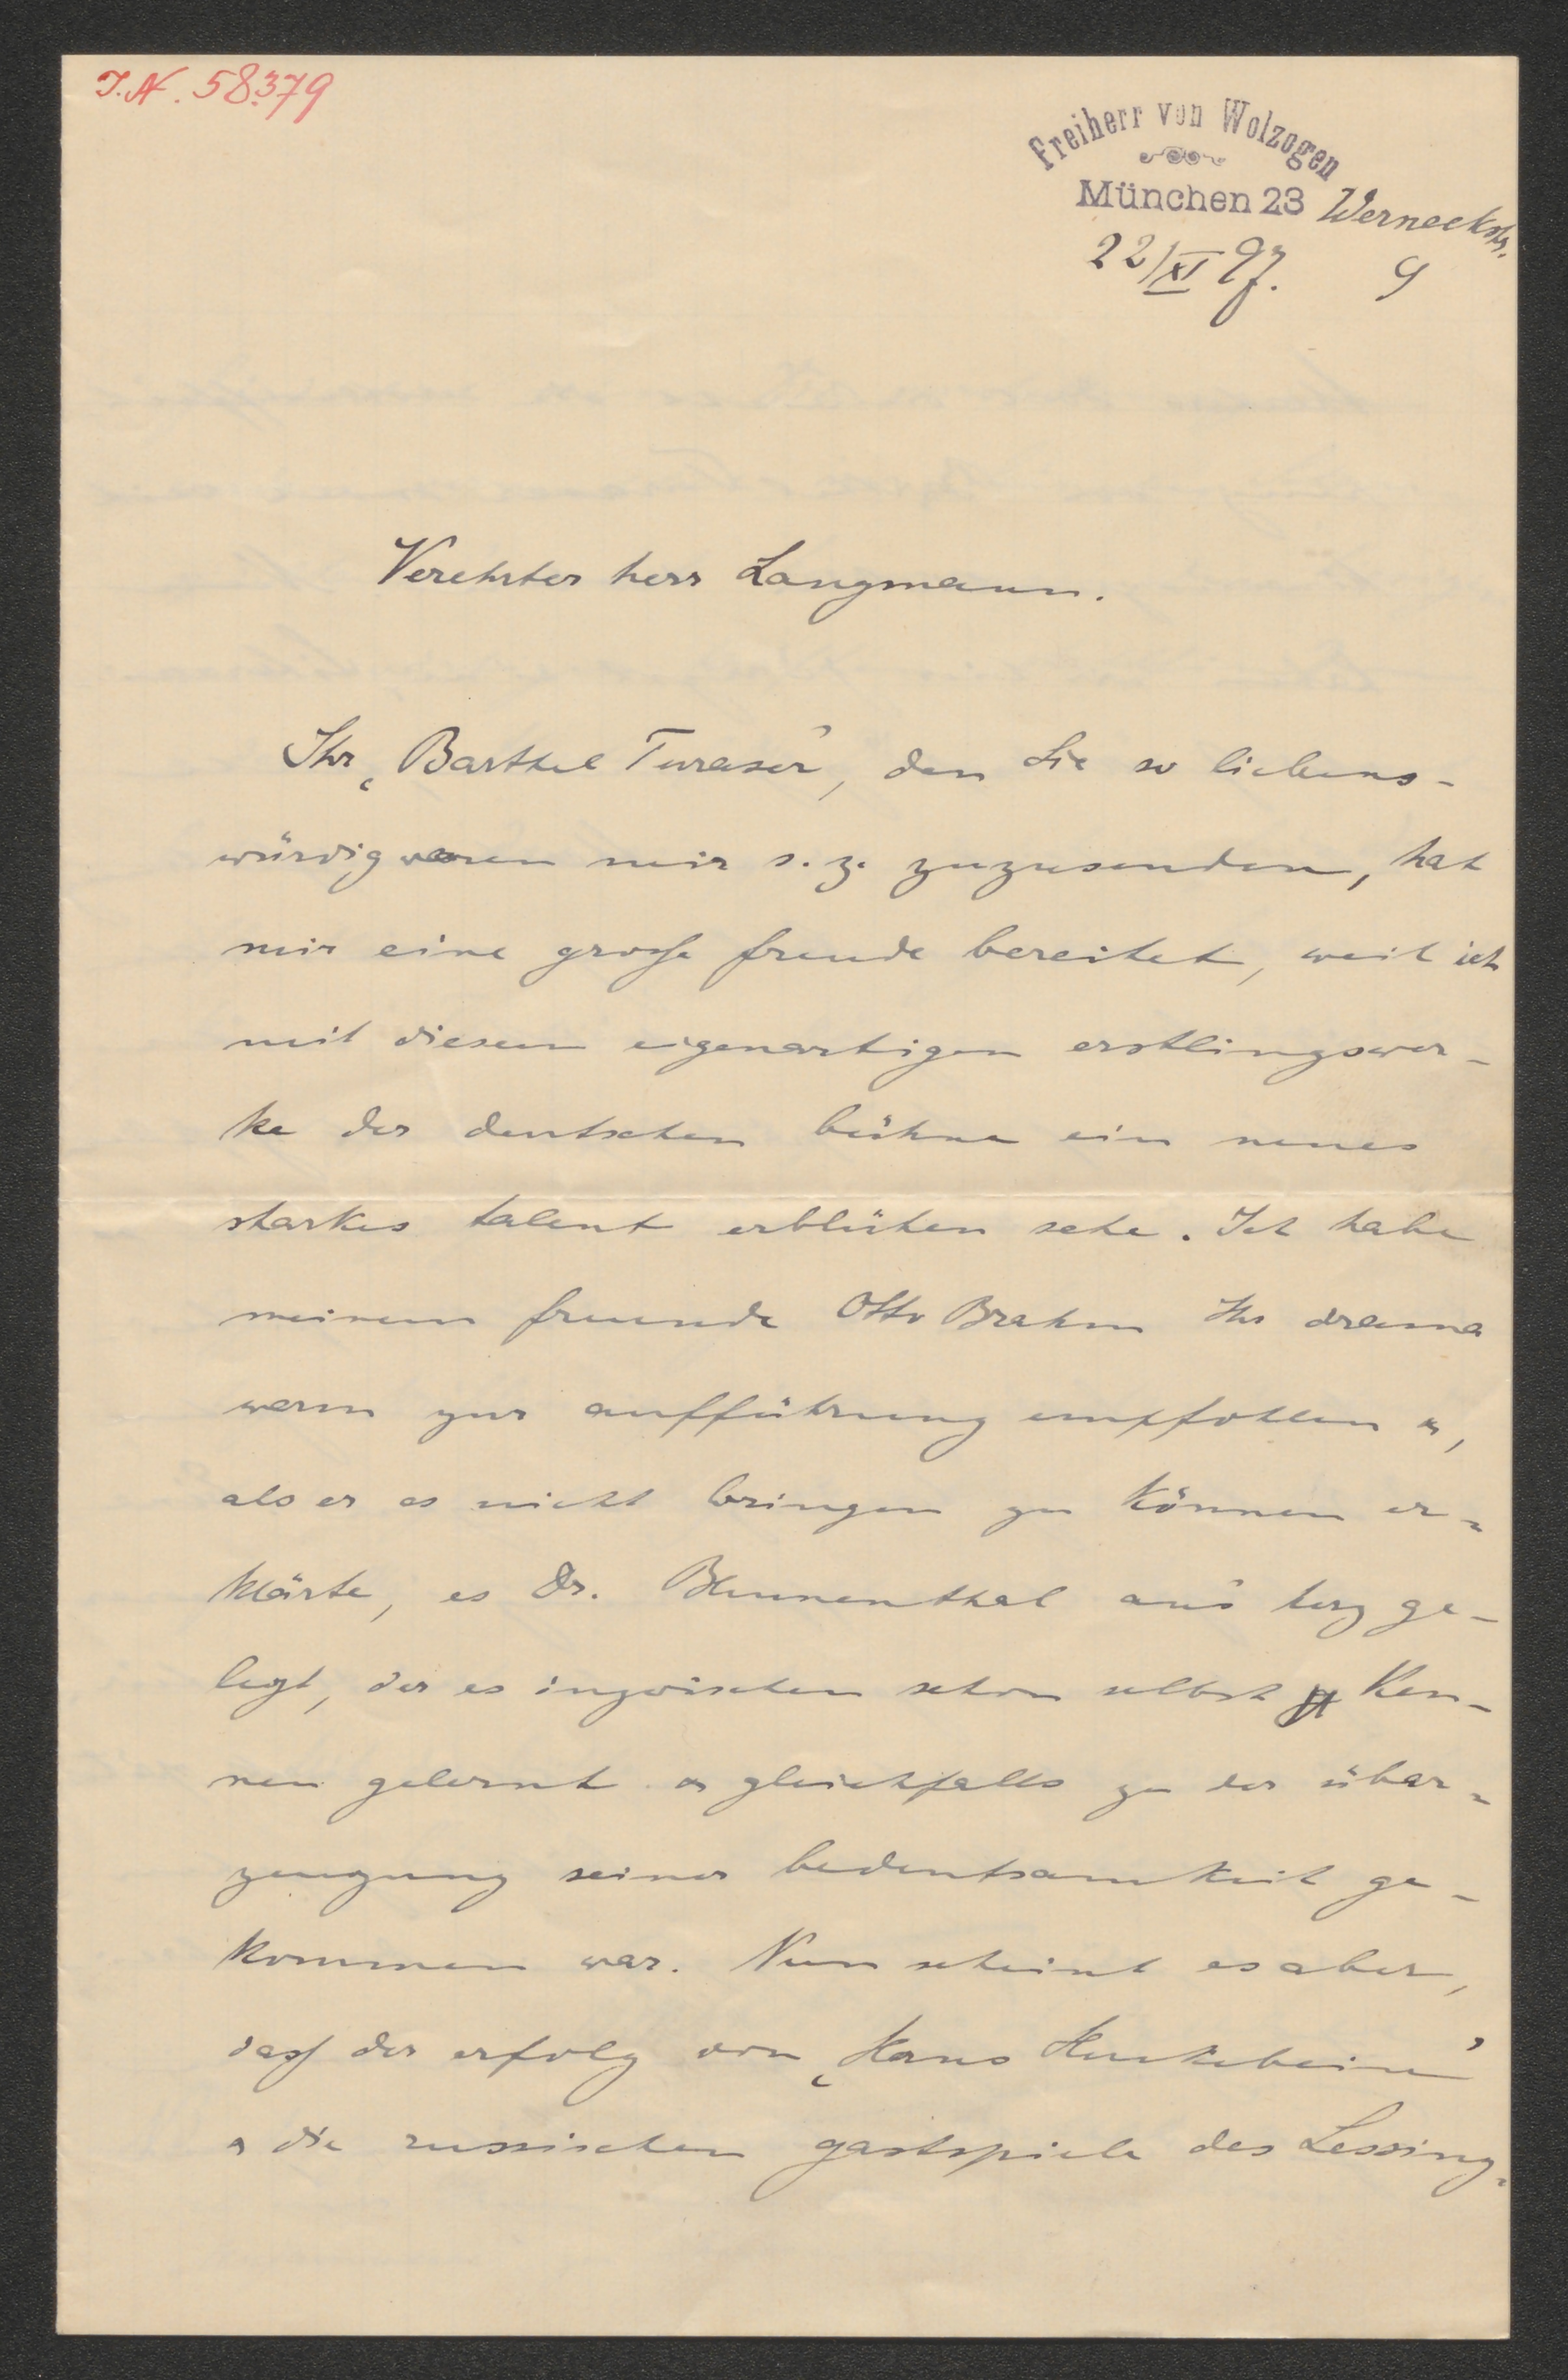 J.N. 58379
Freiherr von Wolzogen
München 23 Werneckstr.
22/XI 97. 9
Verehrter herr Langmann.
Ihr „Barthel Turaser”, den Sie so liebens-
würdig waren mir s. z. zuzusenden, hat
mir eine große freude bereitet, weil ich
mit diesem eigenartigen erstlingswer-
ke der deutschen bühne ein neues
starkes talent erblühen sehe. Ich habe
meinem freunde Otto Brahm Ihr drama
warm zur aufführung empfohlen u,
als er es nicht bringen zu können er-
klärte, es Dr. Blumenthal an's herz ge-
legt, der es inzwischen schon selbst ken-
nen gelernt u gleichfalls zu der über-
zeugung seiner bedeutsamkeit ge-
kommen war. Nun scheint es aber,
daß der erfolg von „Hans Huckebein”
u die russischen gastspiele des Lessing-